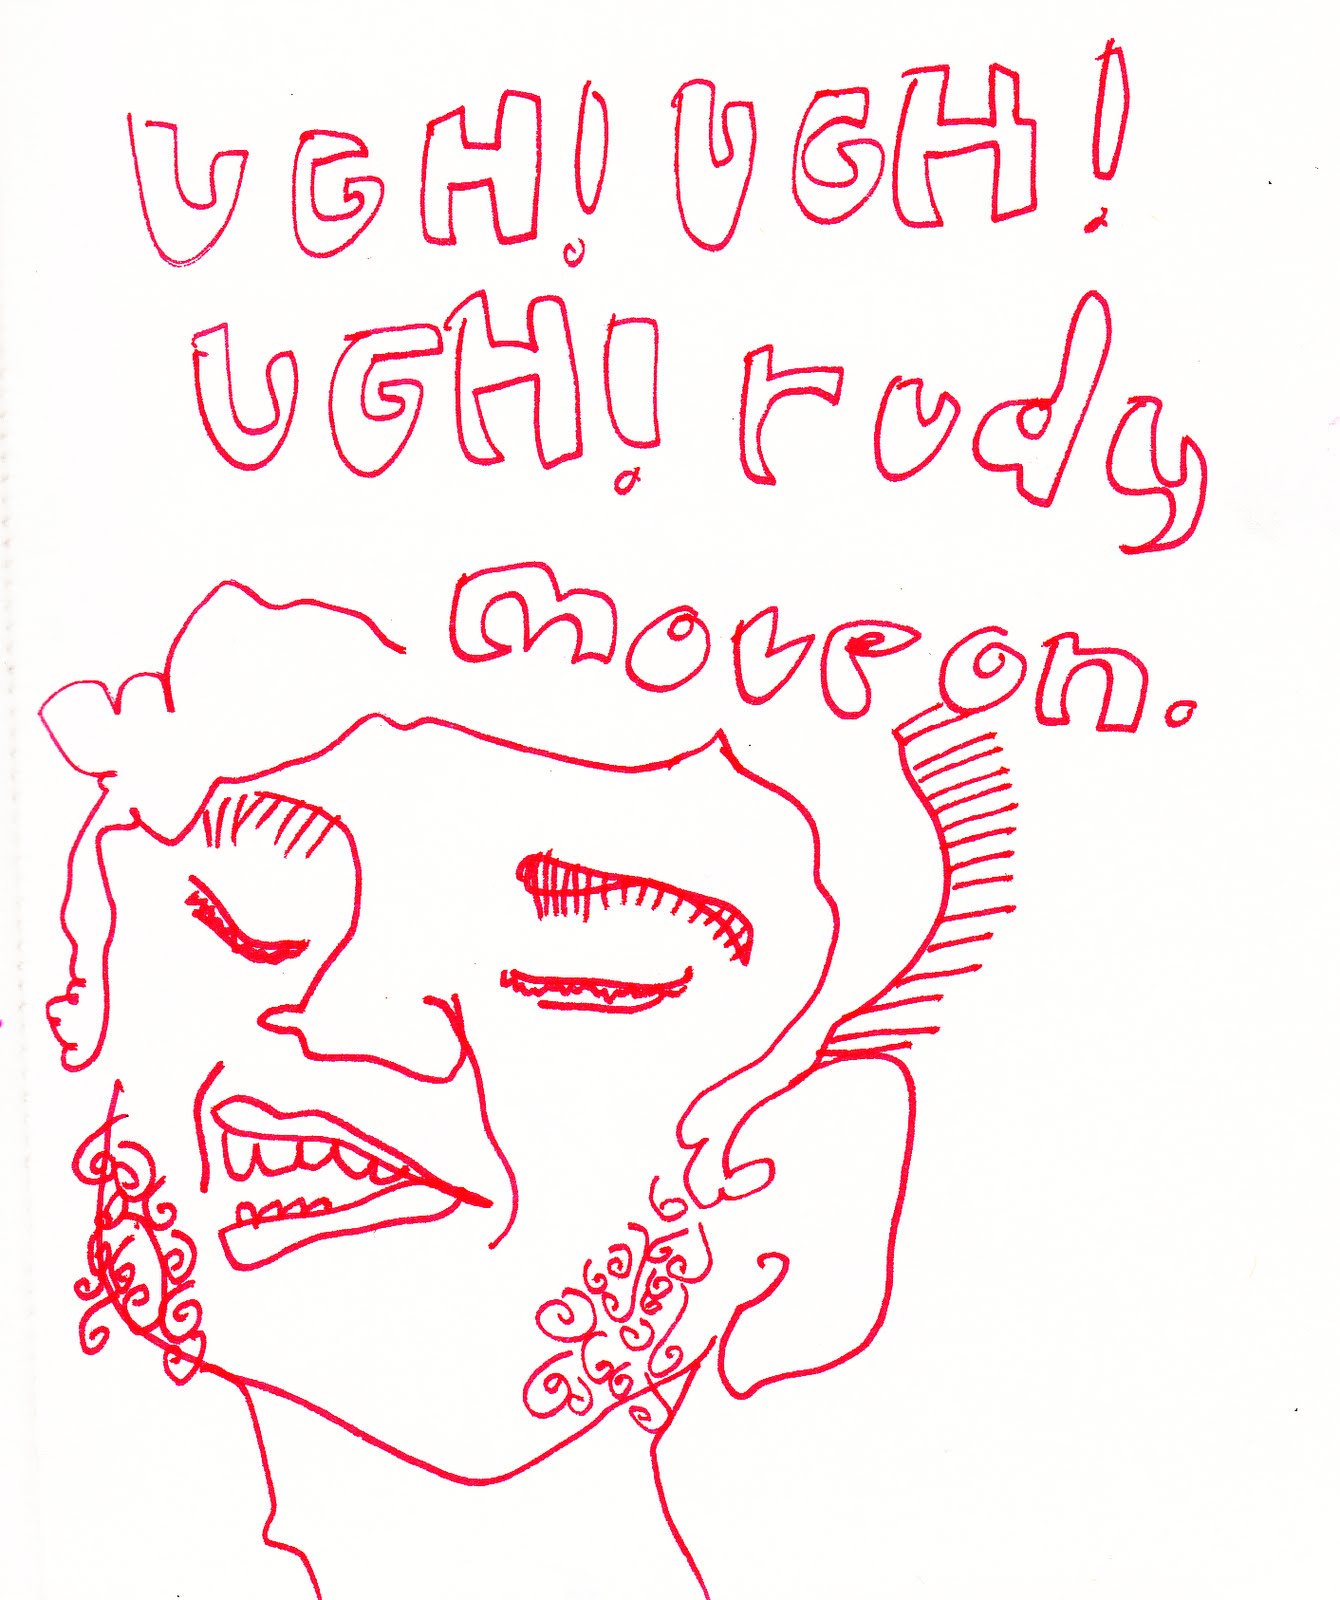 UGH! UGH!
UGH! rudy
move on.